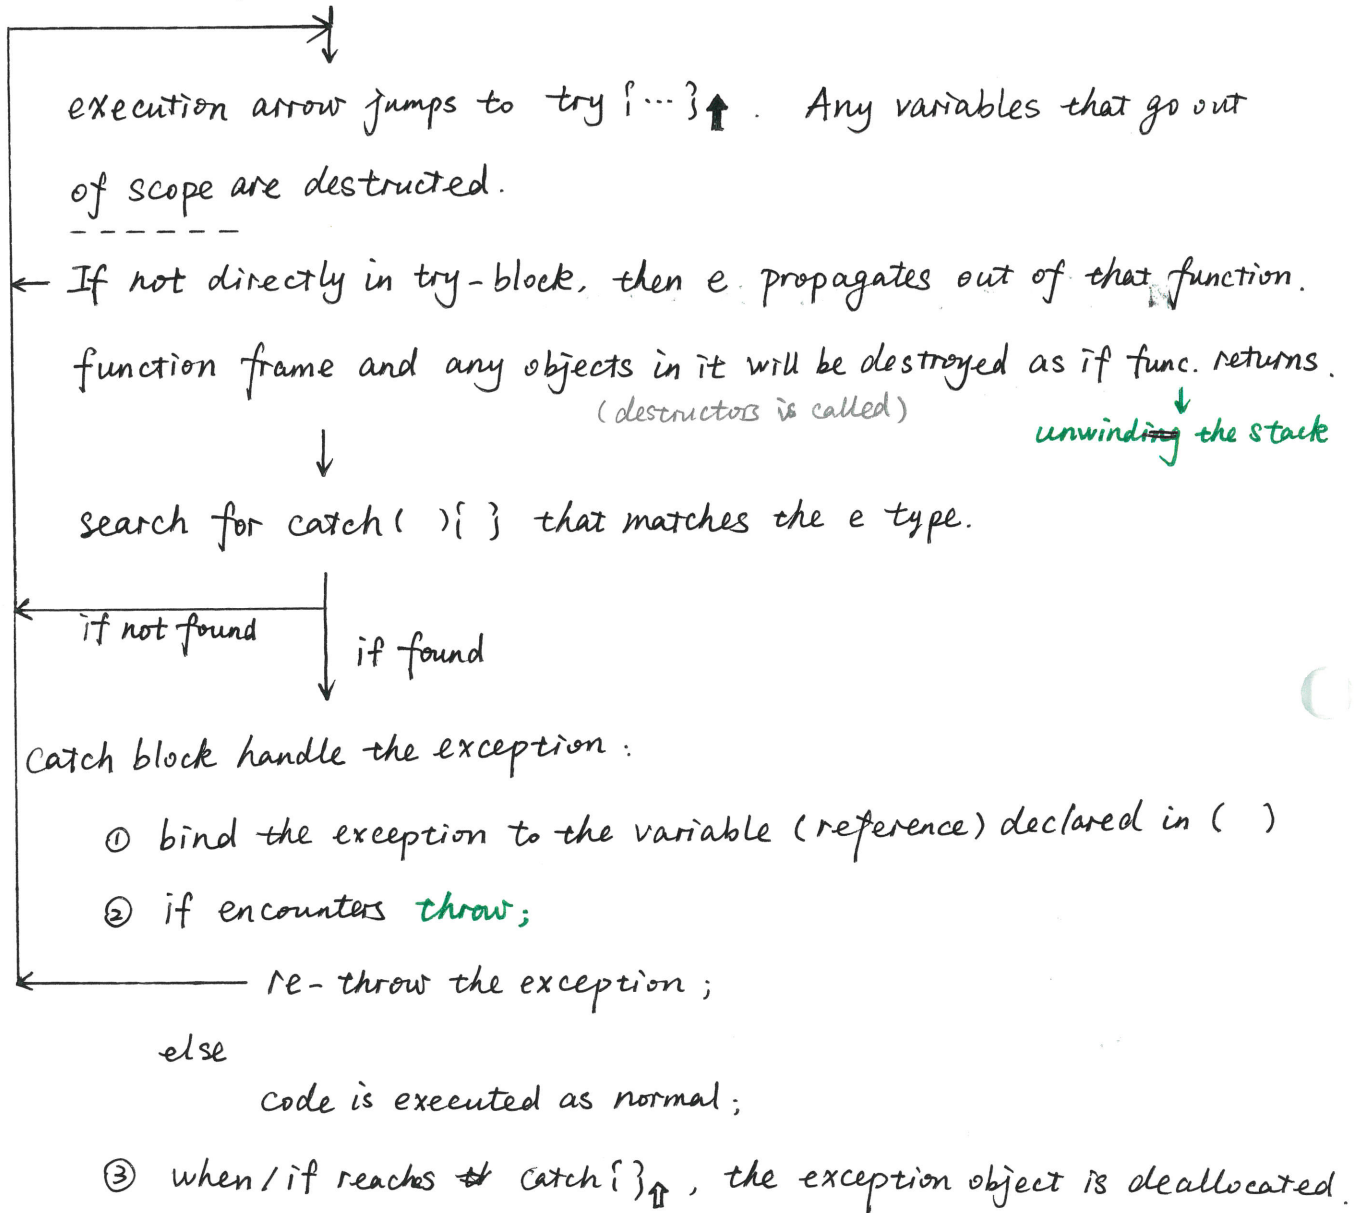 execution arrow jumps to try {...}⬆. Any variables that go out
of scope are destructed.
If not directly in try-block, then e propagates out of that function.
function frame and any objects in it will be destroyed as if func. returns.
(destructors is called)
unwind the stack
search for catch( ){ } that matches the e type.
if not found
if found
catch block handle the exception:
① bind the exception to the variable (reference) declared in ( )
② if encounters throw;
re-throw the exception;
else
code is executed as normal;
③ when/if reaches catch{}⇧, the exception object is deallocated.